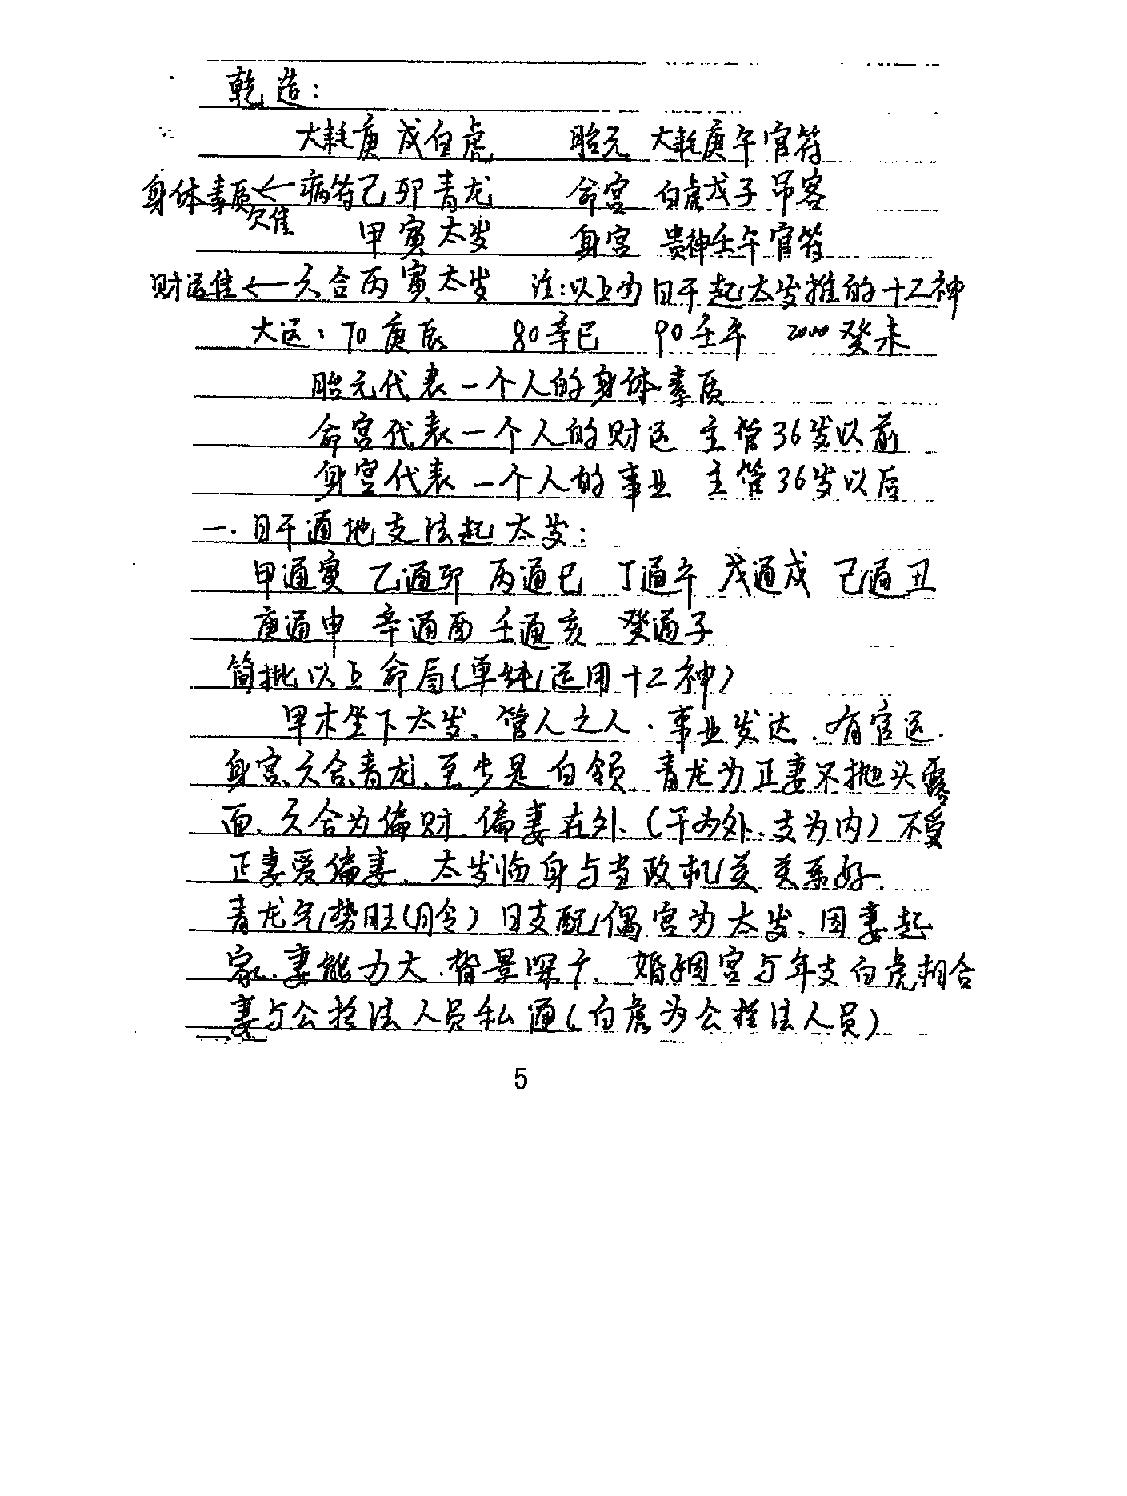 乾造：
大耗庚 戌白虎 胎元 大耗庚午官符
身体素质←病符己卯青龙 命宫 白虎戊子吊客
欠佳 甲寅太岁 身宫 贵神壬午官符
财运佳←六合丙寅太岁 注：以上为日干起太岁推的十二神
大运：70庚辰 80辛巳 90壬午 2000癸未
胎元代表一个人的身体素质
命宫代表一个人的财运 主管36岁以前
身宫代表一个人的事业 主管36岁以后
一.日干通地支法起太岁：
甲通寅 乙通卯 丙通巳 丁通午 戊通戌 己通丑
庚通申 辛通酉 壬通亥 癸通子
简批以上命局（单纯运用十二神）
甲木坐下太岁、管人之人.事业发达.有官运.
身宫、六合、青龙、至少是白领 青龙为正妻不抛头露
面、六合为偏财.偏妻在外、（干为外、支为内）不受
正妻爱偏妻、太岁临身与当政机关关系好.
青龙气势旺（月令）日支配偶宫为太岁、因妻起
家、妻能力大.背景深广、婚姻宫与年支白虎相合
妻与公检法人员私通（白虎为公检法人员）
5